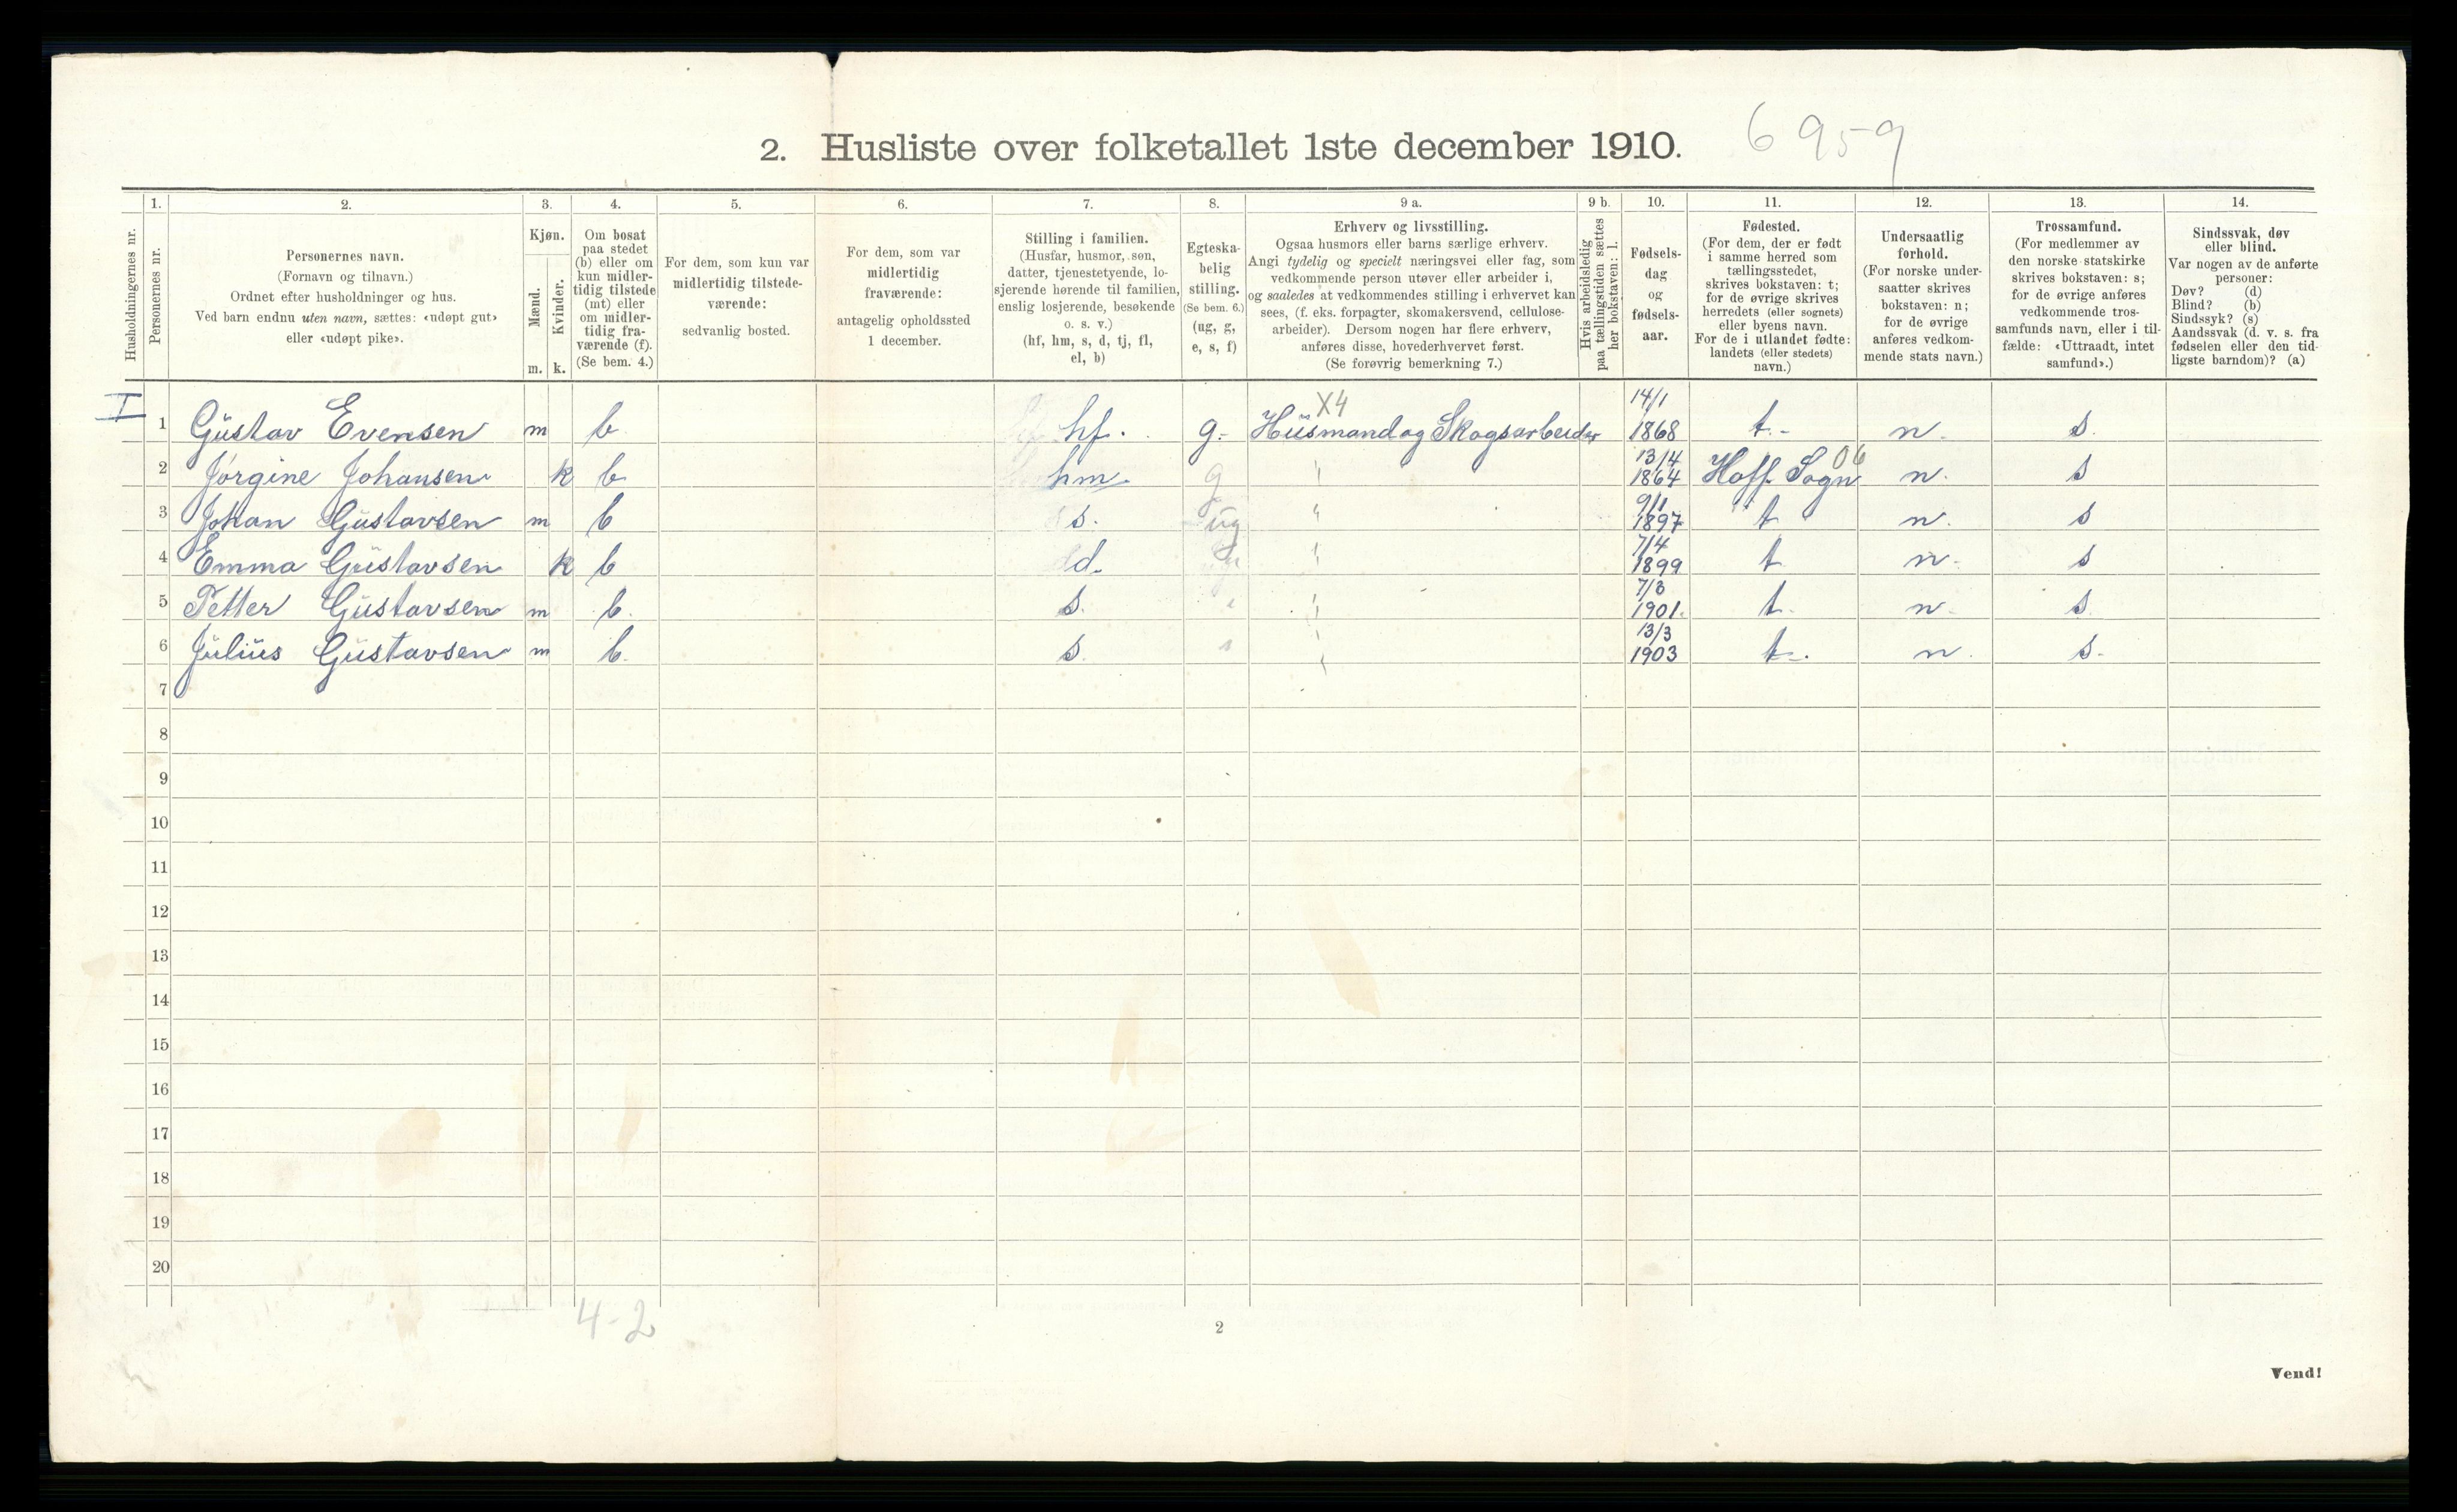 2. Husliste over folketallet 1ste december 1910. 6959
Husholdningernes nr.
1. Personernes nr.
2. Personernes navn.
(Fornavn og tilnavn.)
Ordnet efter husholdninger og hus.
Ved barn endnu uten navn, sættes: «udøpt gut»
eller «udøpt pike».
3. Kjøn.
Mænd. m.
Kvinder. k.
4. Om bosat
paa stedet
(b) eller om
kun midler-
tidig tilstede
(mt) eller
om midler-
tidig fra-
værende (f).
(Se bem. 4.)
5. For dem, som kun var
midlertidig tilstede-
værende:
sedvanlig bosted.
6. For dem, som var
midlertidig
fraværende:
antagelig opholdssted
1 december.
7. Stilling i familien.
(Husfar, husmor, søn,
datter, tjenestetyende, lo-
sjerende hørende til familien,
enslig losjerende, besøkende
o. s. v.)
(hf, hm, s, d, tj, fl,
el, b)
8. Egteska-
belig
stilling.
(Se bem. 6.)
(ug, g,
e, s, f)
9 a. Erhverv og livsstilling.
Ogsaa husmors eller barns særlige erhverv.
Angi tydelig og specielt næringsvei eller fag, som
vedkommende person utøver eller arbeider i,
og saaledes at vedkommendes stilling i erhvervet kan
sees, (f. eks. forpagter, skomakersvend, cellulose-
arbeider). Dersom nogen har flere erhverv,
anføres disse, hovederhvervet først.
(Se forøvrig bemerkning 7.)
9 b. Hvis arbeidsledig
paa tællingstiden sættes
her bokstaven: l.
10. Fødsels-
dag
og
fødsels-
aar.
11. Fødested.
(For dem, der er født
i samme herred som
tællingsstedet,
skrives bokstaven: t;
for de øvrige skrives
herredets (eller sognets)
eller byens navn.
For de i utlandet fødte:
landets (eller stedets)
navn.)
12. Undersaatlig
forhold.
(For norske under-
saatter skrives
bokstaven: n;
for de øvrige
anføres vedkom-
mende stats navn.)
13. Trossamfund.
(For medlemmer av
den norske statskirke
skrives bokstaven: s;
for de øvrige anføres
vedkommende tros-
samfunds navn, eller i til-
fælde: «Uttraadt, intet
samfund».)
14. Sindssvak, døv
eller blind.
Var nogen av de anførte
personer:
Døv? (d)
Blind? (b)
Sindssyk? (s)
Aandssvak (d. v. s. fra
fødselen eller den tid-
ligste barndom)? (a)
X4
I 1 Gustav Evensen m b hf. g.- Husmand og Skogsarbeider 14/1 1868 t.- n. s.
2 Jørgine Johansen k b hm. g " 13/4 1864 Hoff Sogn 06 n. s
3 Johan Gustavsen m b s. ug " 9/1 1897 t n. s
4 Emma Gustavsen k b d. " 7/4 1899 t n- s
5 Petter Gustavsen m b. s. " " 7/3 1901. t. n- s.
6 Julius Gustavsen m b. s. " " 13/3 1903 t-. n. s-
7
8
9
10
11
12
13
14
15
16
17
18
19
20
4-2
2
Vend!